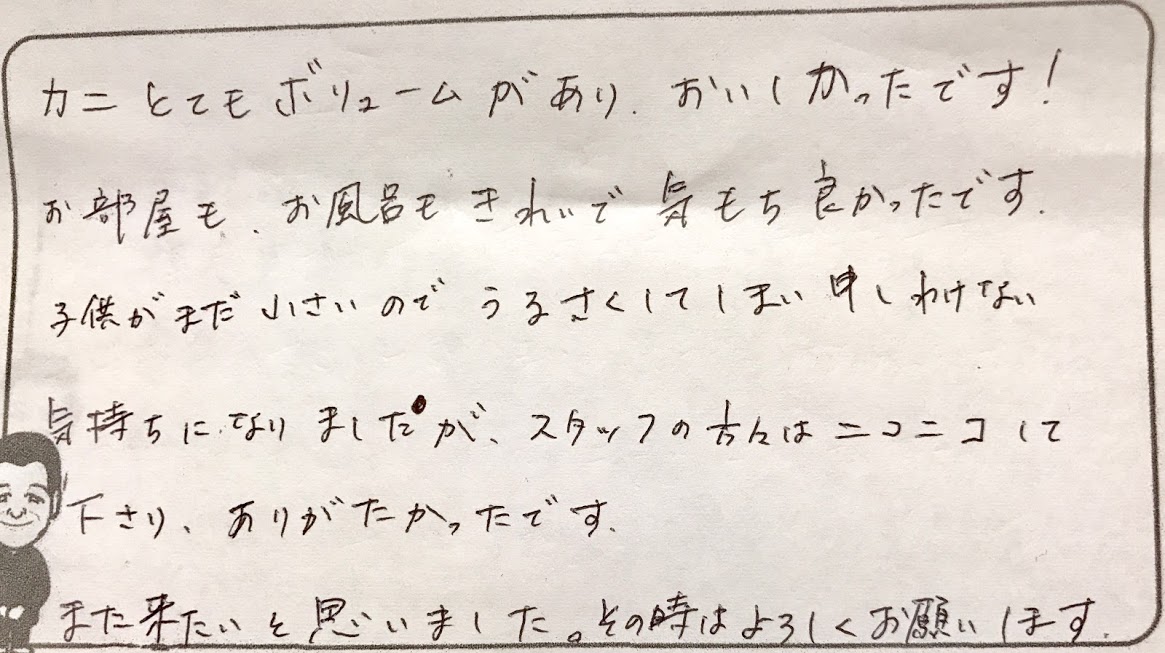 カニとてもボリュームがあり、おいしかったです！
お部屋も、お風呂もきれいで気もち良かったです。
子供がまだ小さいのでうるさくしてしまい申しわけない
気持ちになりましたが、スタッフの方々はニコニコして
下さり、ありがたかったです。
また来たいと思いました。その時はよろしくお願いします。